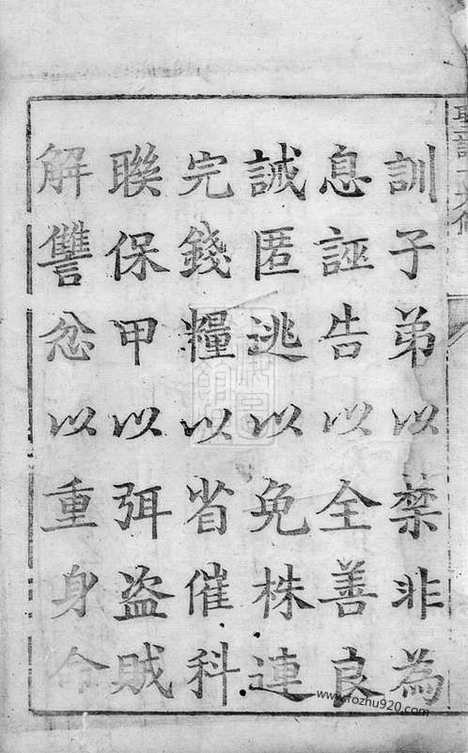 訓子弟以禁非為
息誣告以全善良
誡匿逃以免株連
完錢糧以省催科
聯保甲以弭盜賊
解讐忿以重身命
www.fozhu920.com